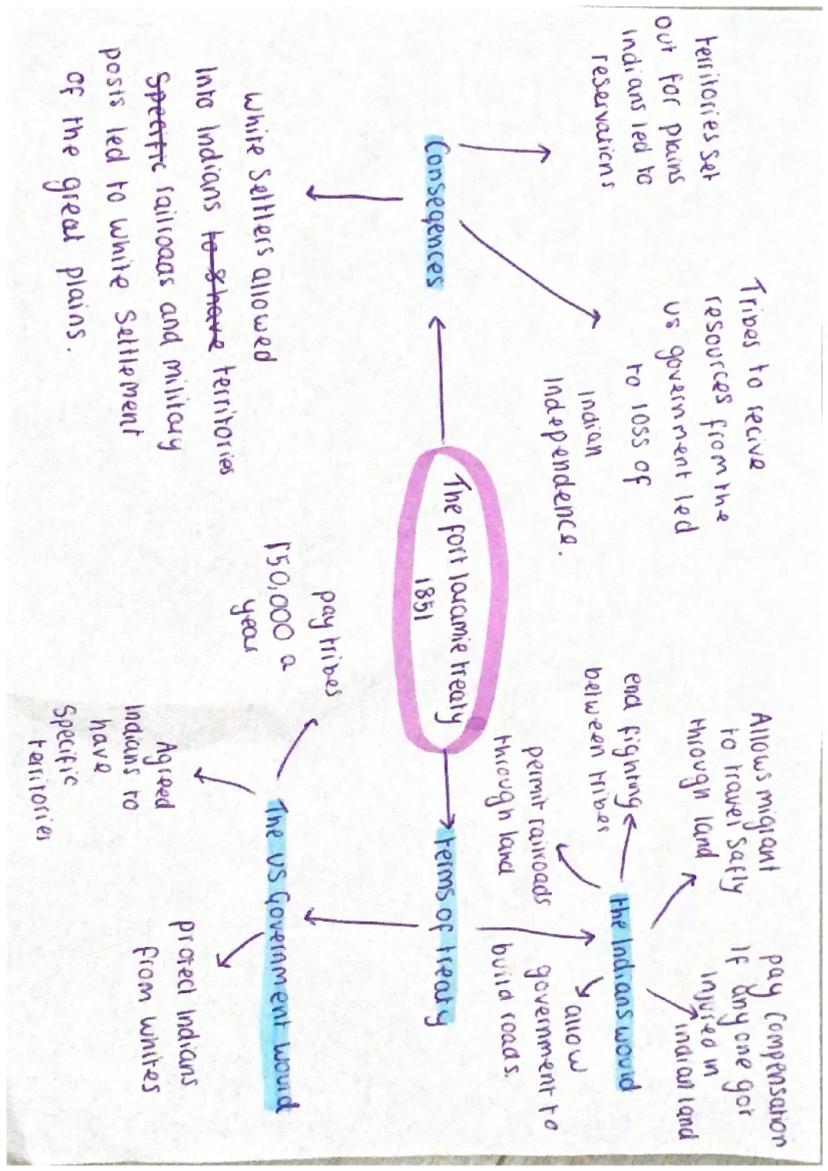 The fort laramie treaty
1851
Conseqences
territories set
out for plains
Indians led to
reservations
Tribes to recive
resources from the
us government led
to loss of
indian
Independence.
white settlers allowed
into Indians to share territories
Specific railroads and military
posts led to white settlement
of the great plains.
terms of treaty
the Indians would
Allows migrant
to travel safly
through land
pay compensation
if any one got
injured in
indian land
end fighting
between tribes
permit railroads
through land
allow
government to
build roads.
The US Government would
pay tribes
150,000 a
year
Agreed
Indians to
have
specific
territories
protect Indians
from whites